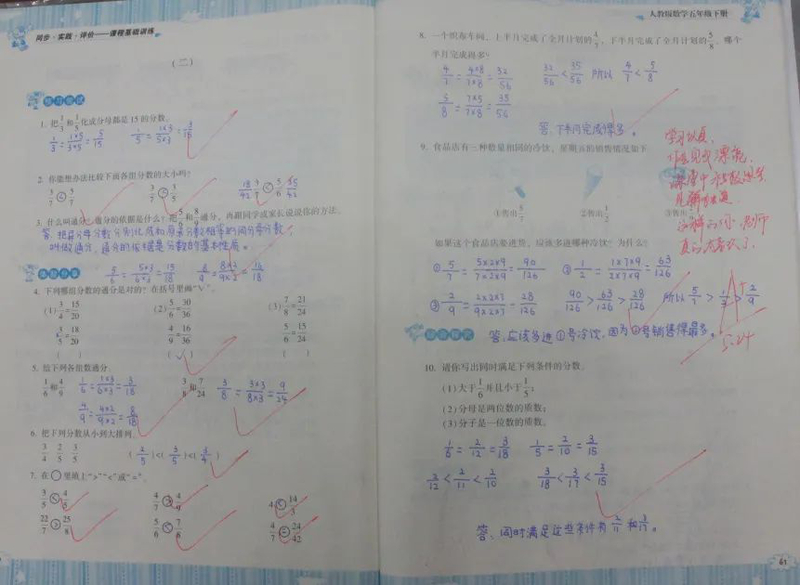 同步·实践·评价——课程基础训练
(二)
1. 把1/3和1/5化成分母都是15的分数。
1/3=1×5/3×5=5/15 1/5=1×3/5×3=3/15
2. 你能想办法比较下面各组分数的大小吗?
3. 什么叫通分?通分的依据是什么?把5/6和8/9通分,再跟同学或家长说说你的方法。
答: 把异分母分数分别化成和原来分数相等的同分母分数,
叫做通分,通分的依据是分数的基本性质。
5/6=5×3/6×3=15/18 8/9=8×2/9×2=16/18
4. 下列哪组分数的通分是对的?在括号里画“√”。
(1) 3/4=15/20 (2) 5/6=30/36 (3) 7/8=21/24
3/5=18/20 4/9=16/36 5/6=15/24
( ) (√) ( )
5. 给下列各组数通分。
1/6和4/9 1/6=1×3/6×3=3/18 3/8和7/24 3/8=3×3/8×3=9/24
4/9=4×2/9×2=8/18
6. 把下列分数从小到大排列。
3/4 2/5 3/5 (2/5)<(3/5)<(3/4)
7. 在○里填上“>”“<”或“=”。
3/5<4/5 4/7>4/9 4<14/3
22/7>25/8 5/6<7/8 4/7=24/42
人教版数学五年级下册
8. 一个织布车间,上半月完成了全月计划的4/7,下半月完成了全月计划的5/8,哪个
半月完成得多?
4/7=4×8/7×8=32/56 32/56<35/56 所以 4/7<5/8
5/8=7×5/7×8=35/56
答:下半月完成得多。
9. 食品店有三种数量相同的冷饮,星期五的销售情况如下
①售出5/7 ②售出1/2 ③售出
如果这个食品店要进货,应该多进哪种冷饮?为什么?
①5/7=5×2×9/7×2×9=90/126 ②1/2=1×7×9/2×7×9=63/126
③2/9=2×2×7/9×2×7=28/126 90/126>63/126>28/126 所以5/7>1/2>2/9
答:应该多进①号冷饮,因为①号销售得最多。
5.24
10. 请你写出同时满足下列条件的分数。
(1)大于1/6并且小于1/5;
(2)分母是两位数的质数;
(3)分子是一位数的质数。
1/6=2/12=3/18 1/5=2/10=3/15
2/12<2/11<2/10 3/18<3/17<3/15
答:同时满足这些条件有2/11和3/17。
61